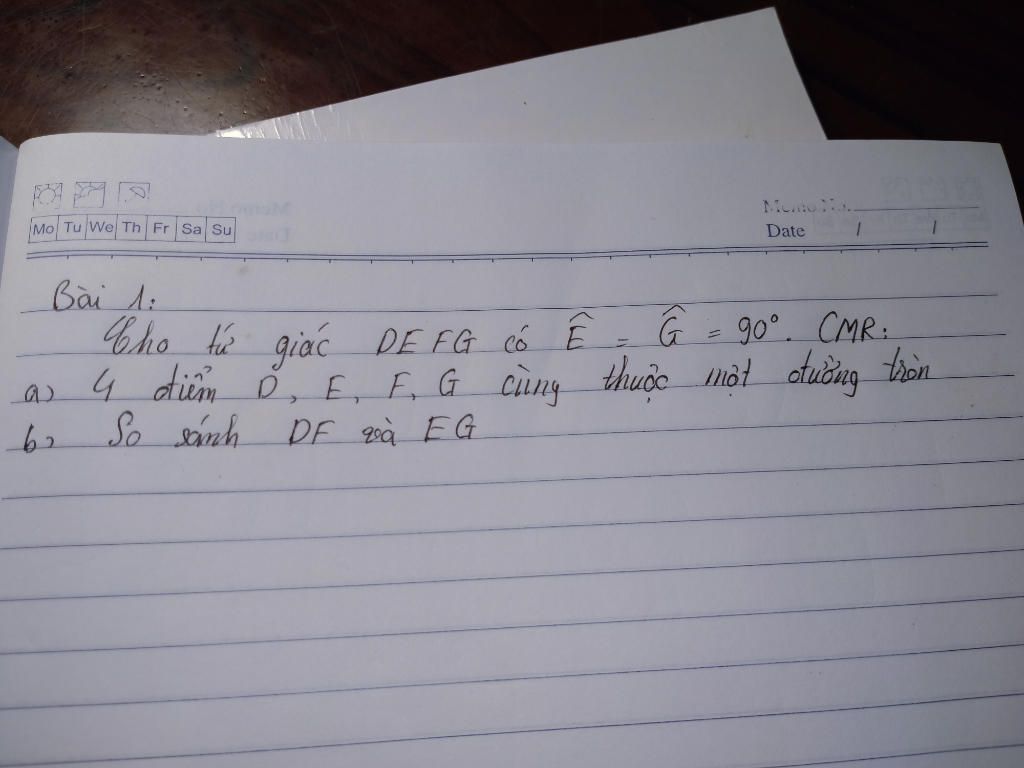 Memo No.
Mo Tu We Th Fr Sa Su
Date / /
Bài 1:
Cho tứ giác DEFG có Ê = Ĝ = 90°. CMR:
a) 4 điểm D, E, F, G cùng thuộc một đường tròn
b) So sánh DF và EG